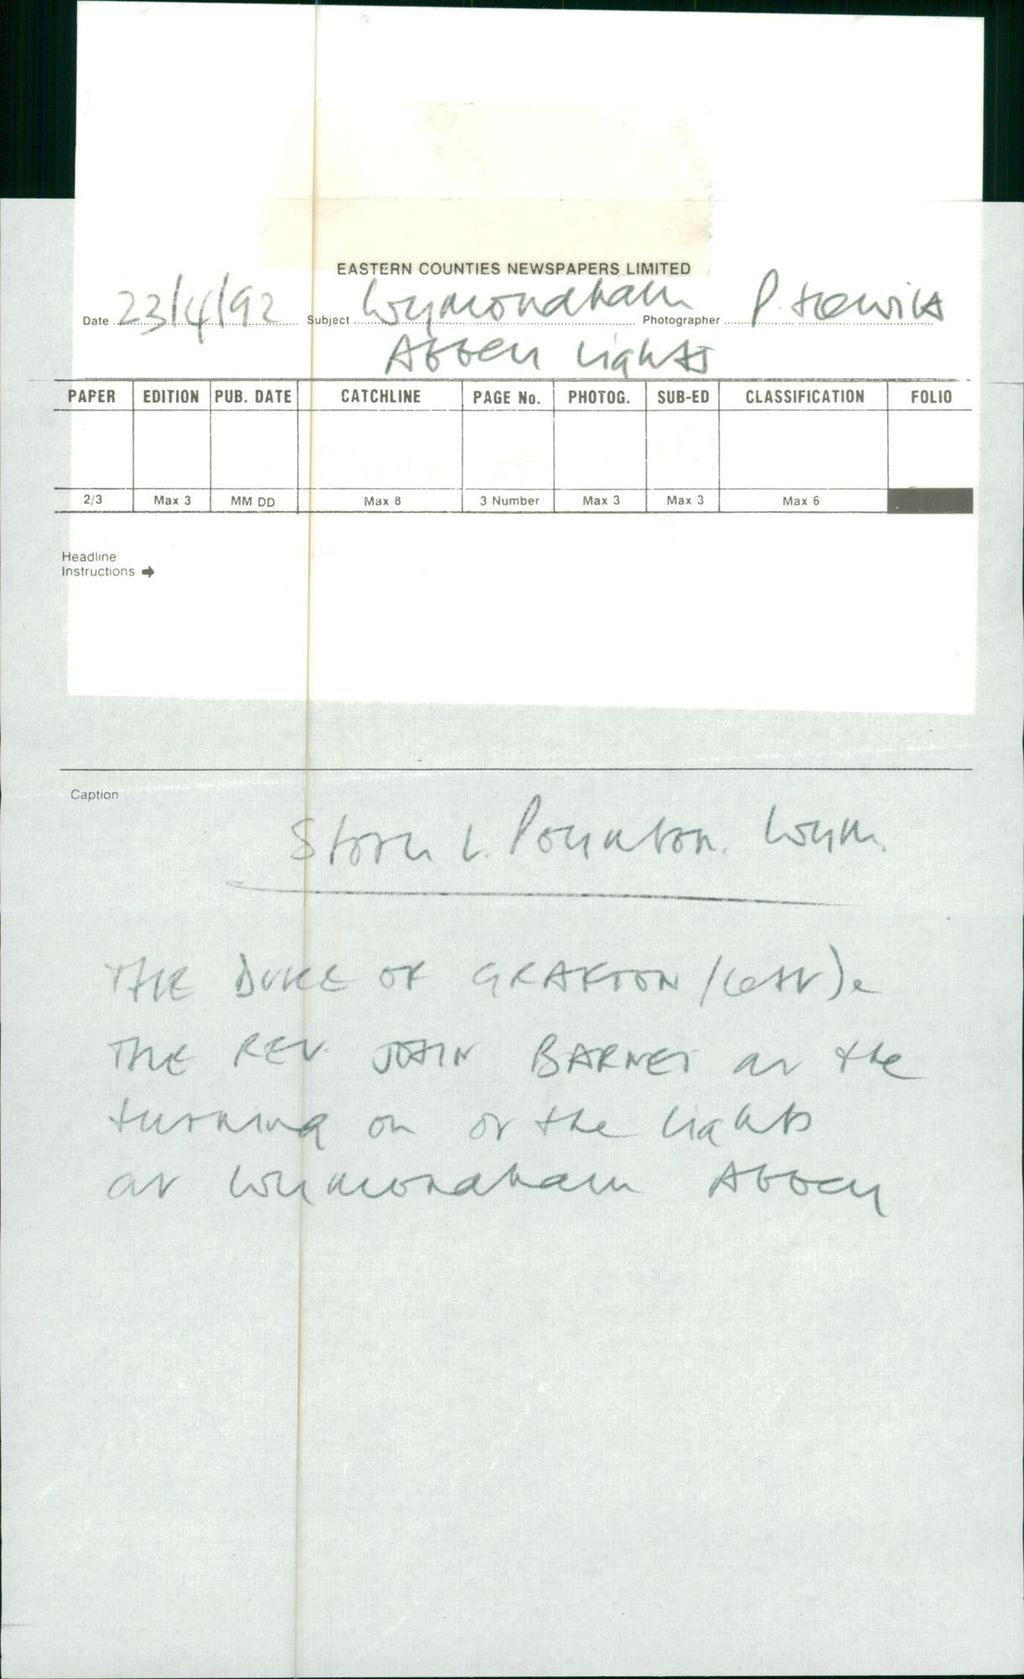 EASTERN COUNTIES NEWSPAPERS LIMITED
Date 23/4/92 Subject Wymondham Photographer P. Hewitt
Abbey Lights
PAPER EDITION PUB. DATE CATCHLINE PAGE No. PHOTOG. SUB-ED CLASSIFICATION FOLIO
2/3 Max 3 MM DD Max 8 3 Number Max 3 Max 3 Max 6
Headline
Instructions
Caption
Story L. Poynton. Wym.
THE DUKE OF GRAFTON (left) &
THE REV. JOHN BARNET at the
turning on of the lights
at Wymondham Abbey